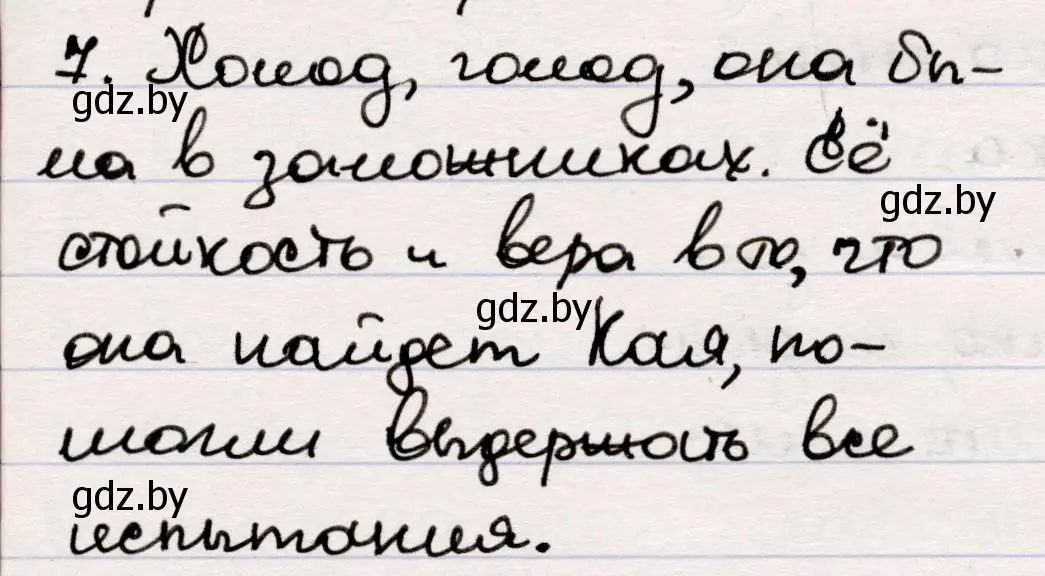 7. Холод, голод, она бы-
gdz.by
ла в заложниках. Её
gdz.by
стойкость и вера в то, что
gdz.by
она найдет Кая, по-
могли выдержать все
gdz.by
испытания.